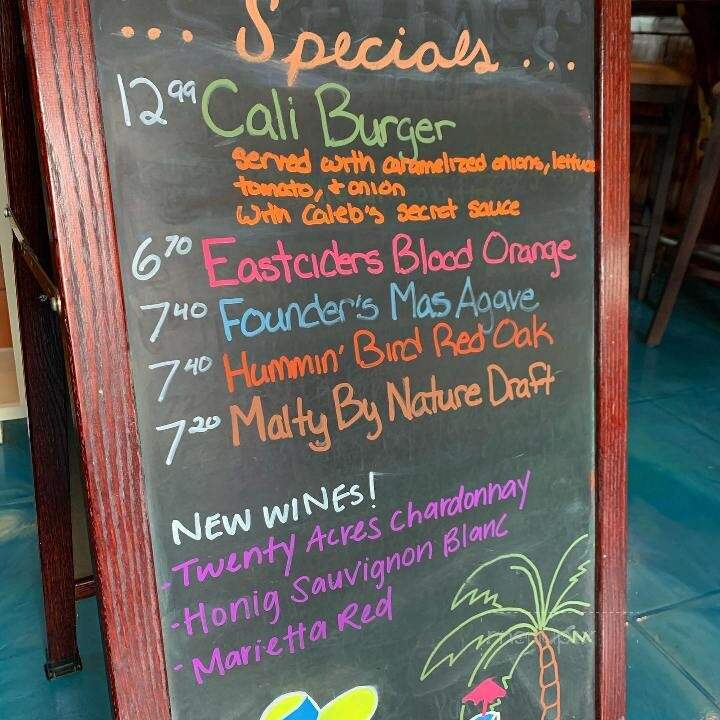 ... Specials ...
12.99 Cali Burger
served with caramelized onions, lettuce
tomato, + onion
with Caleb's secret sauce
6.70 Eastciders Blood Orange
7.40 Founder's Mas Agave
7.40 Hummin' Bird Red Oak
7.20 Malty By Nature Draft
NEW WINES!
- Twenty Acres Chardonnay
- Honig Sauvignon Blanc
- Marietta Red